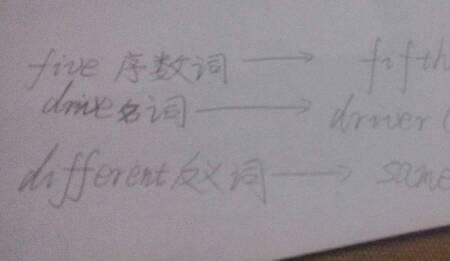 five 序数词 → fifth
drive 名词 → driver (
different 反义词 → same